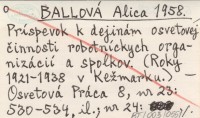 BALLOVÁ Alica 1958.
Príspevok k dejinám osvetovej
činnosti robotníckych orga-
nizácií a spolkov. (Roky
1921-1938 v Kežmarku.)
Osvetová Práca 8, nr 23:
530-534, il.; nr 24: